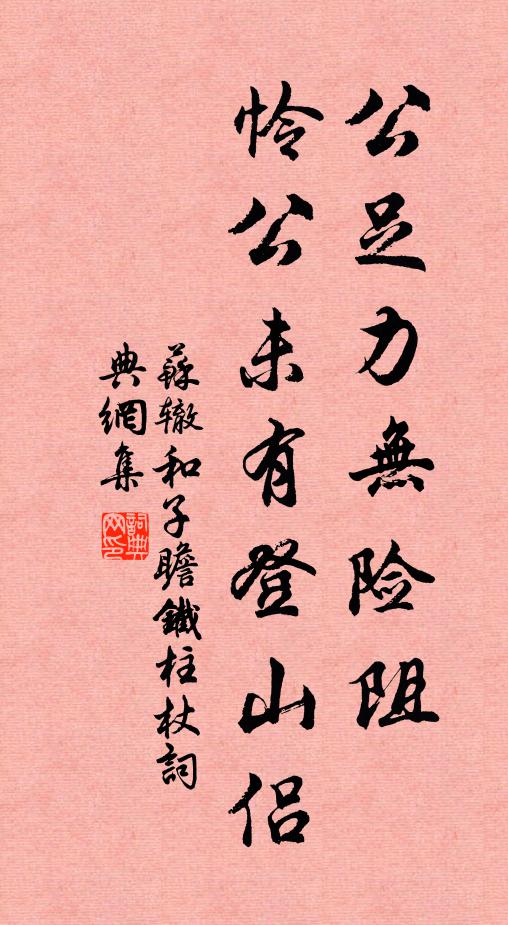 公足力無险阻
怜公未有登山侣
蘇辙和子瞻鐵柱杖詞
典網集
詞典
网印